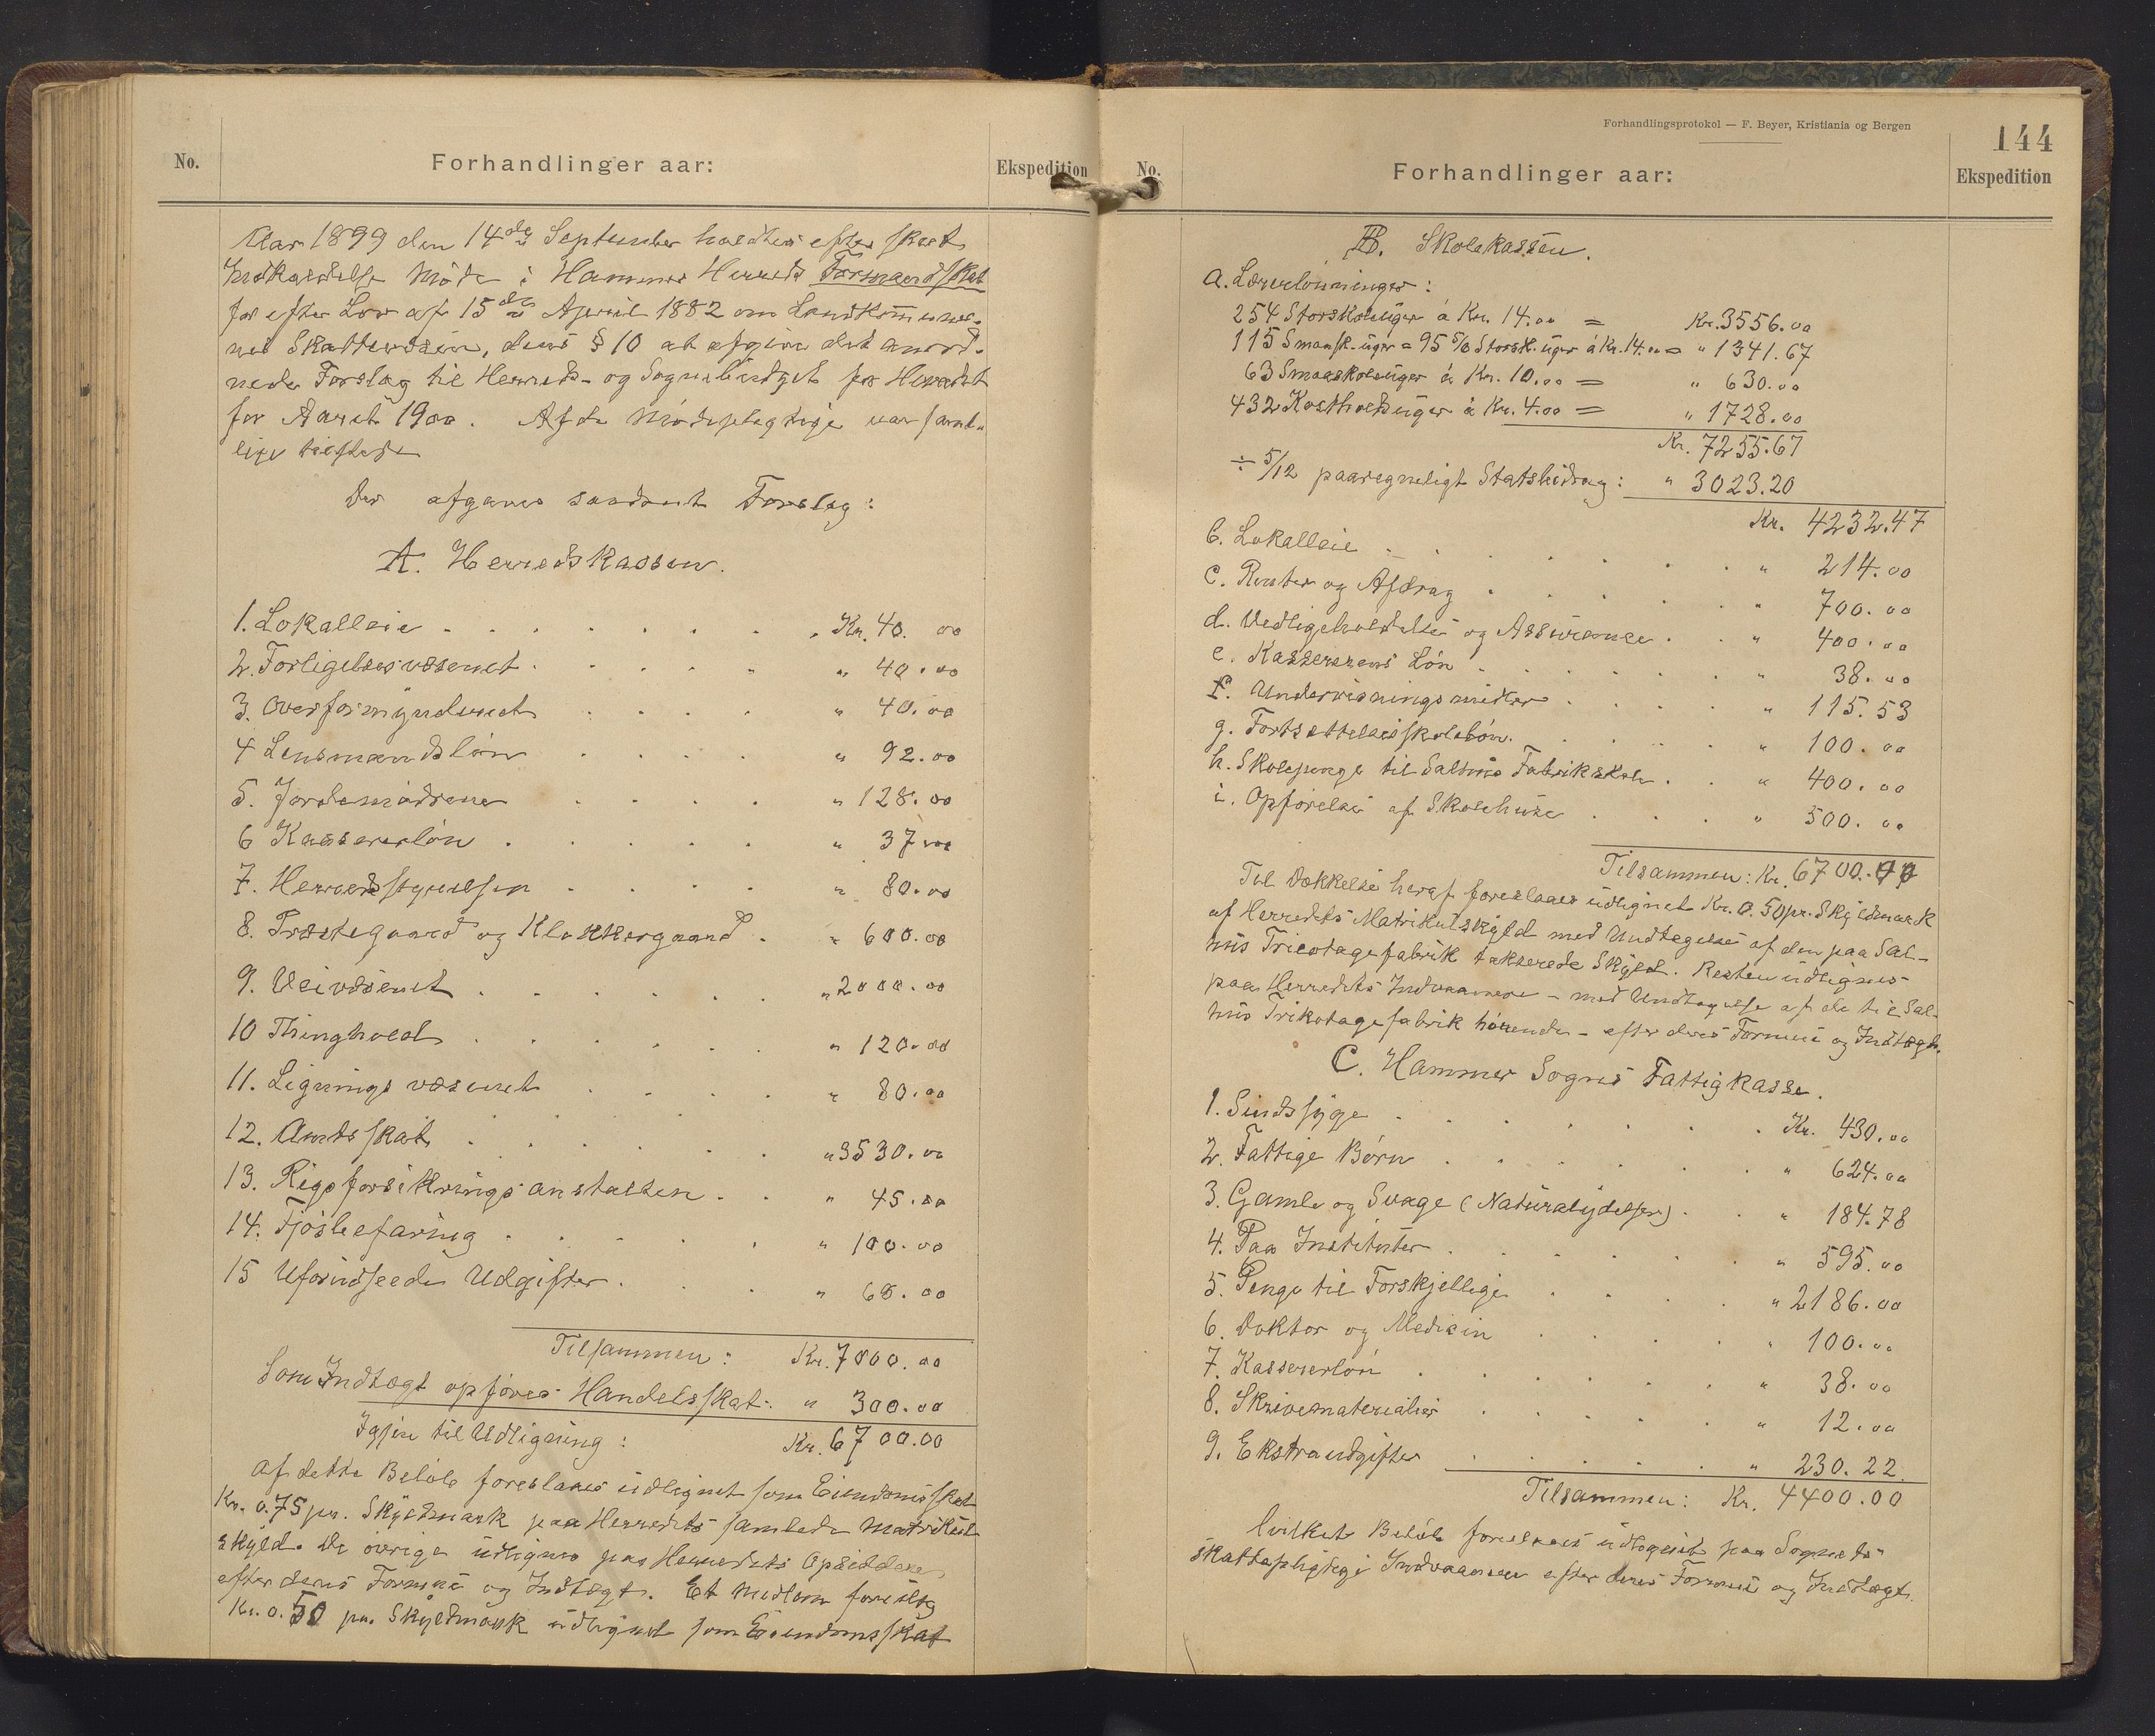 No.
Forhandlinger aar:
Ekspedition
Aar 1899 den 14de September holdtes efter skeet
Indkaldelse Møde i Hammer Herreds Formandskab
for efter Lov af 15de April 1882 om Landkommuner-
nes Skattevæsen, dens § 10 at afgive det anord-
nede Forslag til Herreds- og Sognebudget for Herredet
for Aaret 1900. Af de Mødepligtige var samt-
lige tilstede
Der afgaves saadant Forslag:
A. Herredskassen.
1. Lokalleie Kr. 40.00
2. Forligelsesvæsenet " 40.00
3. Overformynderiet " 40.00
4 Lensmandsløn " 92.00
5. Jordemødrene " 128.00
6 Kassererløn " 37.00
7. Herredsstyrelsen " 80.00
8. Præstegaard og Klokkergaard " 600.00
9. Veivæsenet " 2000.00
10 Thinghold " 120.00
11. Ligningsvæsenet " 80.00
12. Amtsskat " 3530.00
13. Rigsforsikringsanstalten " 45.00
14. Fjøsbefaring " 100.00
15 Uforudseede Udgifter " 68.00
Tilsammen: Kr. 7000.00
Som Indtægt opføres Handelsskat: " 300.00
Igjen til Udligning: Kr. 6700.00
Af dette Beløb foreslaaes udlignet som Eiendomsskat
Kr. 0.75 pr. Skyldmark paa Herredets samlede Matrikul-
skyld. De øvrige udlignes paa Herredets Opsiddere
efter deres Formue og Indtægt. Et Medlem foreslog
Kr. 0.50 pr. Skyldmark udlignet som Eiendomsskat
Forhandlingsprotokol — F. Beyer, Kristiania og Bergen
144
No.
Forhandlinger aar:
Ekspedition
B. Skolekassen.
a. Lærerlønninger:
254 Storskoleuger á Kr. 14.00 = Kr. 3556.00
115 Smaask.uger = 95 5/6 Storsk.uger á Kr. 14.00 = " 1341.67
63 Smaaskoleuger á Kr. 10.00 = " 630.00
432 Kostholdsuger á Kr. 4.00 = " 1728.00
Kr. 7255.67
÷ 5/12 paaregneligt Statsbidrag: " 3023.20
Kr. 4232.47
b. Lokalleie " 214.00
c. Renter og Afdrag " 700.00
d. Vedligeholdelse og Assurance " 400.00
e. Kassererens Løn " 38.00
f. Undervisningsmidler " 115.53
g. Fortsættelsesskolebøn. " 100.00
h. Skolepenge til Salhus Fabrikskole " 400.00
i. Opførelse af Skolehuse " 500.00
Tilsammen: Kr. 6700.00
Til Dækkelse heraf foreslaaes udlignet Kr. 0.50 pr. Skyldmark
af Herredets Matrikulskyld med Undtagelse af den paa Sal-
hus Tricotagefabrik takserede Skyld. Resten udlignes
paa Herredets Indvaanere – med Undtagelse af de til Sal-
hus Trikotagefabrik hørende – efter deres Formue og Indtægt.
C. Hammer Sogns Fattigkasse.
1. Sindssyge Kr. 430.00
2. Fattige Børn " 624.00
3. Gamle og Svage (Naturalydelser) " 184.78
4. Paa Institutter " 595.00
5. Penge til Forskjellige " 2186.00
6. Doktor og Medicin " 100.00
7. Kassererløn " 38.00
8. Skrivematerialier " 12.00
9. Ekstraudgifter " 230.22.
Tilsammen: Kr. 4400.00
hvilket Beløb foreslaaes udlignet paa Sognets
skattepligtige Indvaanere efter deres Formue og Indtægt.